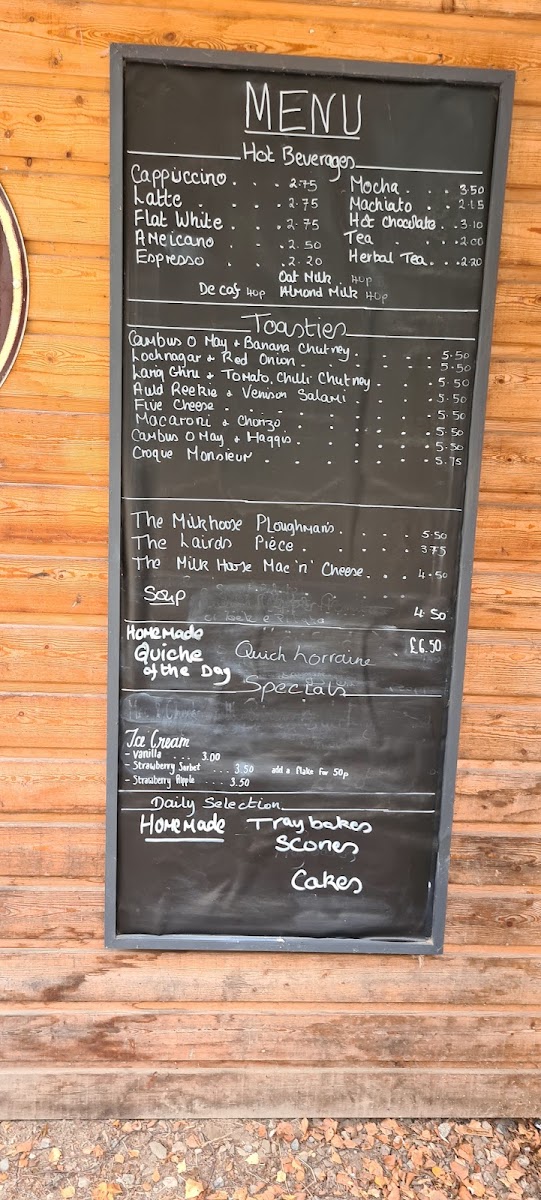 MENU
Hot Beverages
Cappuccino . . . 2.75
Latte . . . 2.75
Flat White . . . 2.75
Americano . . . 2.50
Espresso . . . 2.20
Mocha . . . 3.50
Machiato . . 2.15
Hot chocolate . . 3.10
Tea . . . 2.00
Herbal Tea . . 2.20
Oat Milk . 40p
De Caf 40p Almond Milk 40p
Toasties
Cambus O May & Banana Chutney . . . . 5.50
Lochnagar & Red Onion . . . . . 5.50
Lang & Tomato, Chilli Chutney . . . 5.50
Auld Reekie & Venison Salami . . . . 5.50
Five Cheese . . . . . . . 5.50
Macaroni & Chorizo . . . . . 5.50
Cambus O May & Haggis . . . . . 5.50
Croque Monsieur . . . . . . 5.75
The Milkhoose Ploughman's . . . . 5.50
The Lairds Piece . . . . . 3.75
The Milk Horse Mac 'n' Cheese . . . 4.50
Soup 4.50
HomeMade
Quiche
of the Day
Quich Lorraine £6.50
Specials
Ice Cream
- Vanilla . . . 3.00
- Strawberry Sorbet . . . 3.50 add a flake for 50p
- Strawberry Ripple . . . 3.50
Daily Selection
HOMEMADE Traybakes
Scones
Cakes